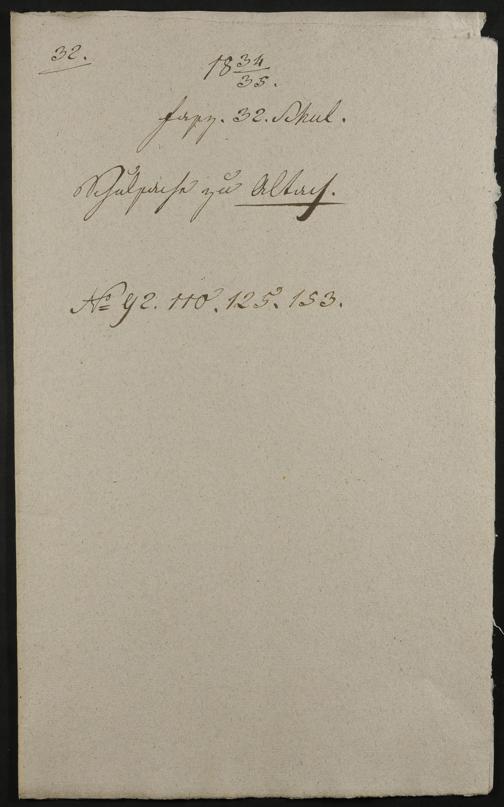 32.
18 34/35.
Fasz. 32. Schul.
Schulsache zu Altach.
No 92. 110. 125. 153.